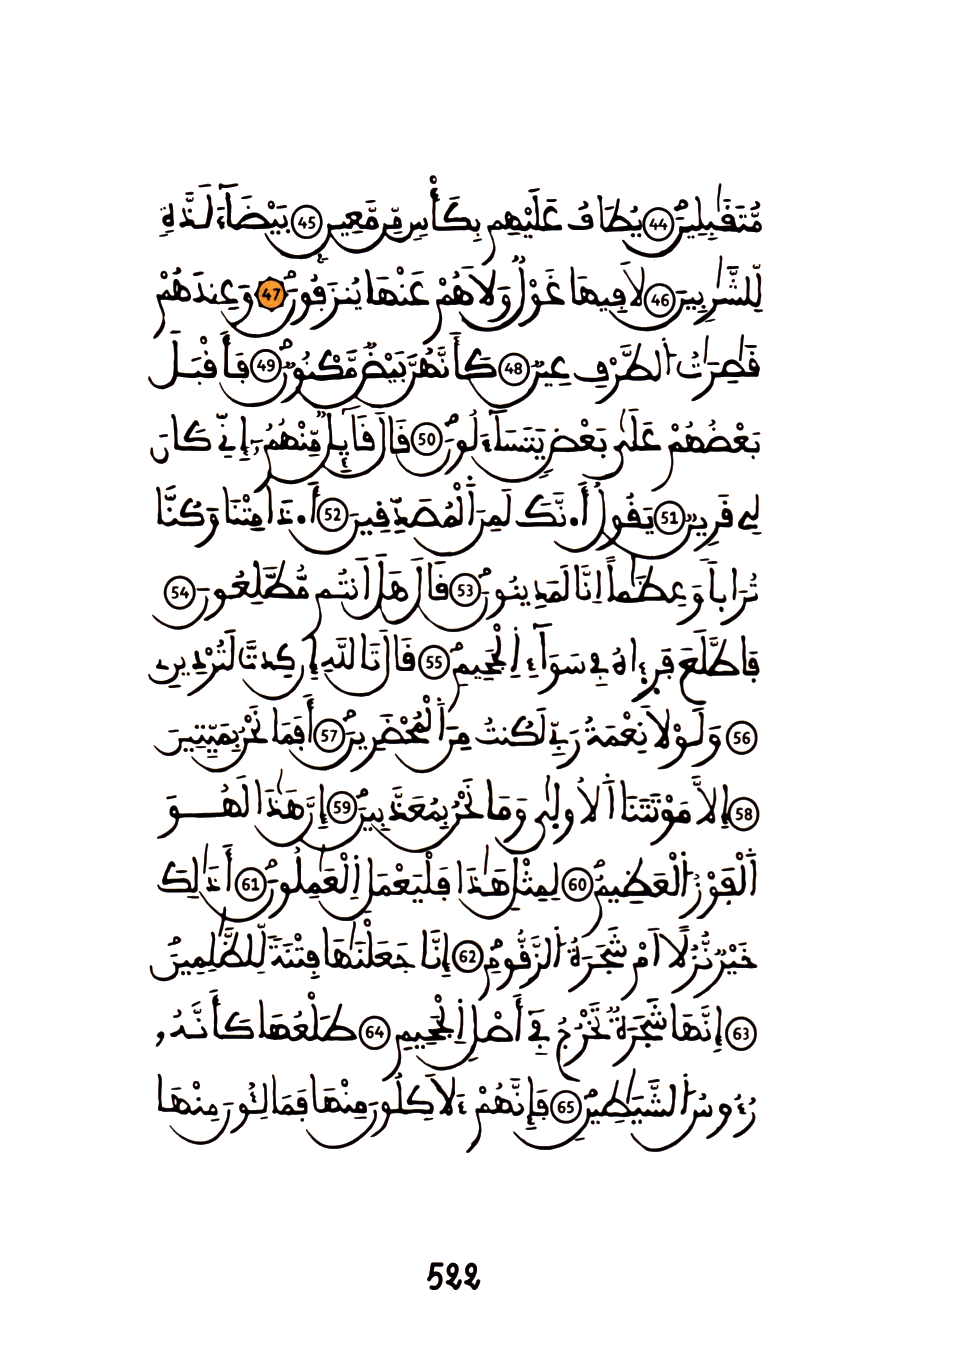 مُّتَقَٰبِلِينَۖ 44 يُطَافُ عَلَيْهِم بِكَأْسٖ مِّن مَّعِينِۢ 45 بَيْضَآءَ لَذَّةٖ
لِّلشَّٰرِبِينَ 46 لَا فِيهَا غَوْلٞ وَلَا هُمْ عَنْهَا يُنزَفُونَۖ 47 وَعِندَهُمْ
قَٰصِرَٰتُ اُ۬لطَّرْفِ عِينٞ 48 كَأَنَّهُنَّ بَيْضٞ مَّكْنُونٞۖ 49 فَأَقْبَلَ
بَعْضُهُمْ عَلَىٰ بَعْضٖ يَتَسَآءَلُونَۖ 50 قَالَ قَآئِلٞ مِّنْهُمُۥٓ إِنِّے كَانَ
لِے قَرِينٞ 51 يَقُولُ أَ.نَّكَ لَمِنَ اَ۬لْمُصَدِّقِينَ 52 أَ.ذَا مِتْنَا وَكُنَّا
تُرَاباٗ وَعِظَٰماً اِنَّا لَمَدِينُونَۖ 53 قَالَ هَلَ اَنتُم مُّطَّلِعُونَ 54
فَاطَّلَعَ فَرِءَاهُ فِے سَوَآءِ اِ۬لْجَحِيمِۖ 55 قَالَ تَاللَّهِ إِن كِدتَّ لَتُرْدِينِۦ
56 وَلَوْلَا نِعْمَةُ رَبِّے لَكُنتُ مِنَ اَ۬لْمُحْضَرِينَۖ 57 أَفَمَا نَحْنُ بِمَيِّتِينَ
58 إِلَّا مَوْتَتَنَا اَ۬لُاولَىٰ وَمَا نَحْنُ بِمُعَذَّبِينَۖ 59 إِنَّ هَٰذَا لَهُوَ
اَ۬لْفَوْزُ اُ۬لْعَظِيمُۖ 60 لِمِثْلِ هَٰذَا فَلْيَعْمَلِ اِ۬لْعَٰمِلُونَۖ 61 أَذَٰلِكَ
خَيْرٞ نُّزُلًا اَمْ شَجَرَةُ اُ۬لزَّقُّومِۖ 62 إِنَّا جَعَلْنَٰهَا فِتْنَةٗ لِّلظَّٰلِمِينَۖ
63 إِنَّهَا شَجَرَةٞ تَخْرُجُ فِےٓ أَصْلِ اِ۬لْجَحِيمِ 64 طَلْعُهَا كَأَنَّهُۥ
رُءُوسُ اُ۬لشَّيَٰطِينِۖ 65 فَإِنَّهُمْ ءَلَاكِلُونَ مِنْهَا فَمَالِـُٔونَ مِنْهَا
522